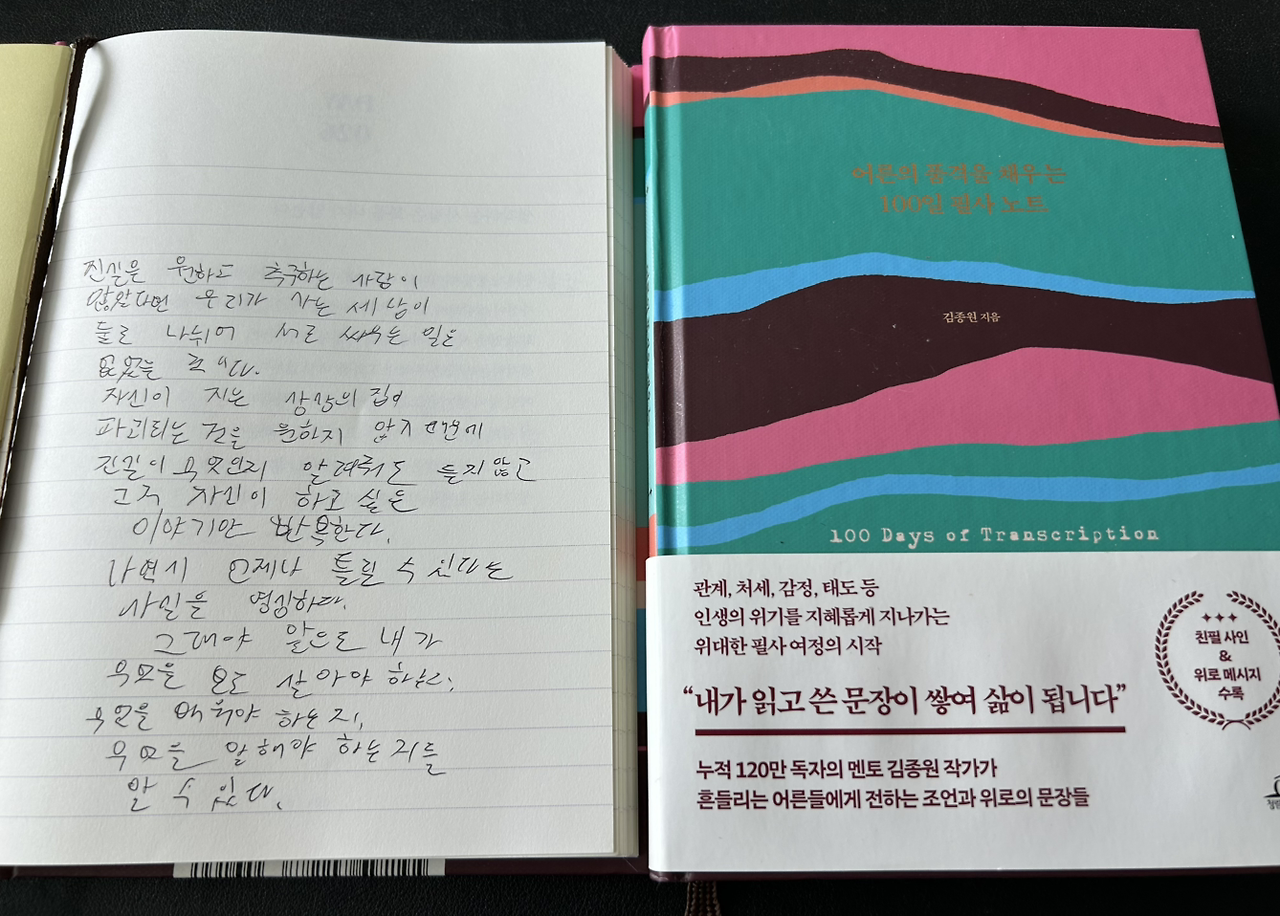 진실을 원하고 추구하는 사람이
많았다면 우리가 사는 세상이
둘로 나뉘어 서로 싸우는 일은
없었을 것이다.
자신이 지은 상상의 집이
파괴되는 것을 원하지 않기 때문에
진실이 무엇인지 알려줘도 듣지 않고
그저 자신이 하고 싶은
이야기만 반복한다.
나 역시 언제나 틀릴 수 있다는
사실을 명심하다.
그래야 앞으로 내가
무엇을 보고 살아야 하는지,
무엇을 배워야 하는지,
무엇을 말해야 하는지를
알 수 있다.
어른의 품격을 채우는
100일 필사 노트
김종원 지음
100 Days of Transcription
관계, 처세, 감정, 태도 등
인생의 위기를 지혜롭게 지나가는
위대한 필사 여정의 시작
친필 사인
&
위로 메시지
수록
“내가 읽고 쓴 문장이 쌓여 삶이 됩니다”
누적 120만 독자의 멘토 김종원 작가가
흔들리는 어른들에게 전하는 조언과 위로의 문장들